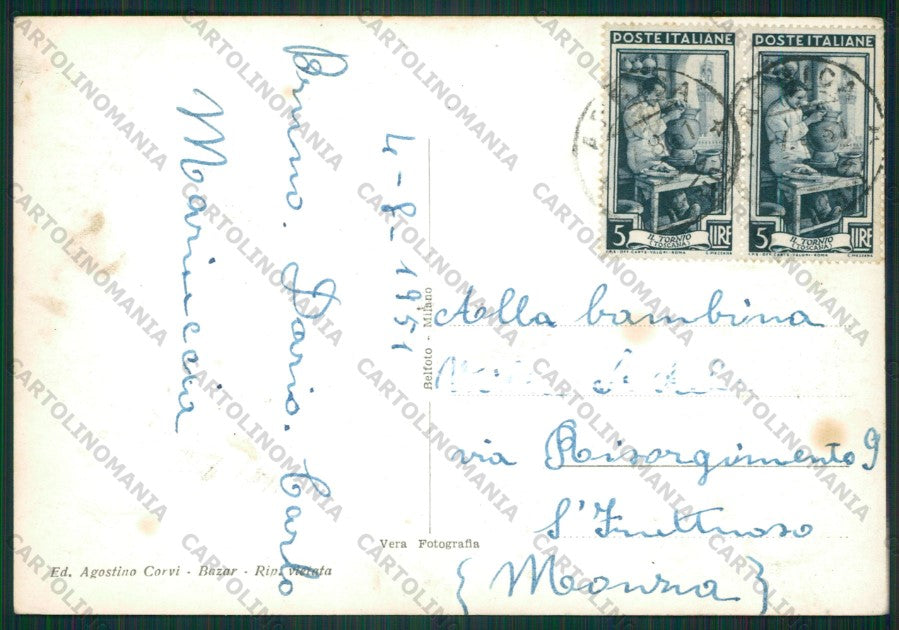 Bruno. Dario. Carlo
Marinccia
4-8-1951
Ed. Agostino Corvi - Bazar - Rip. vietata
Belfoto - Milano
Vera Fotografia
POSTE ITALIANE
5 LIRE
IL TORNIO
TOSCANA
POSTE ITALIANE
5 LIRE
IL TORNIO
TOSCANA
Alla bambina
via Risorgimento 9
S'Fruttuoso
{Monza}
CARTOLINOMANIA